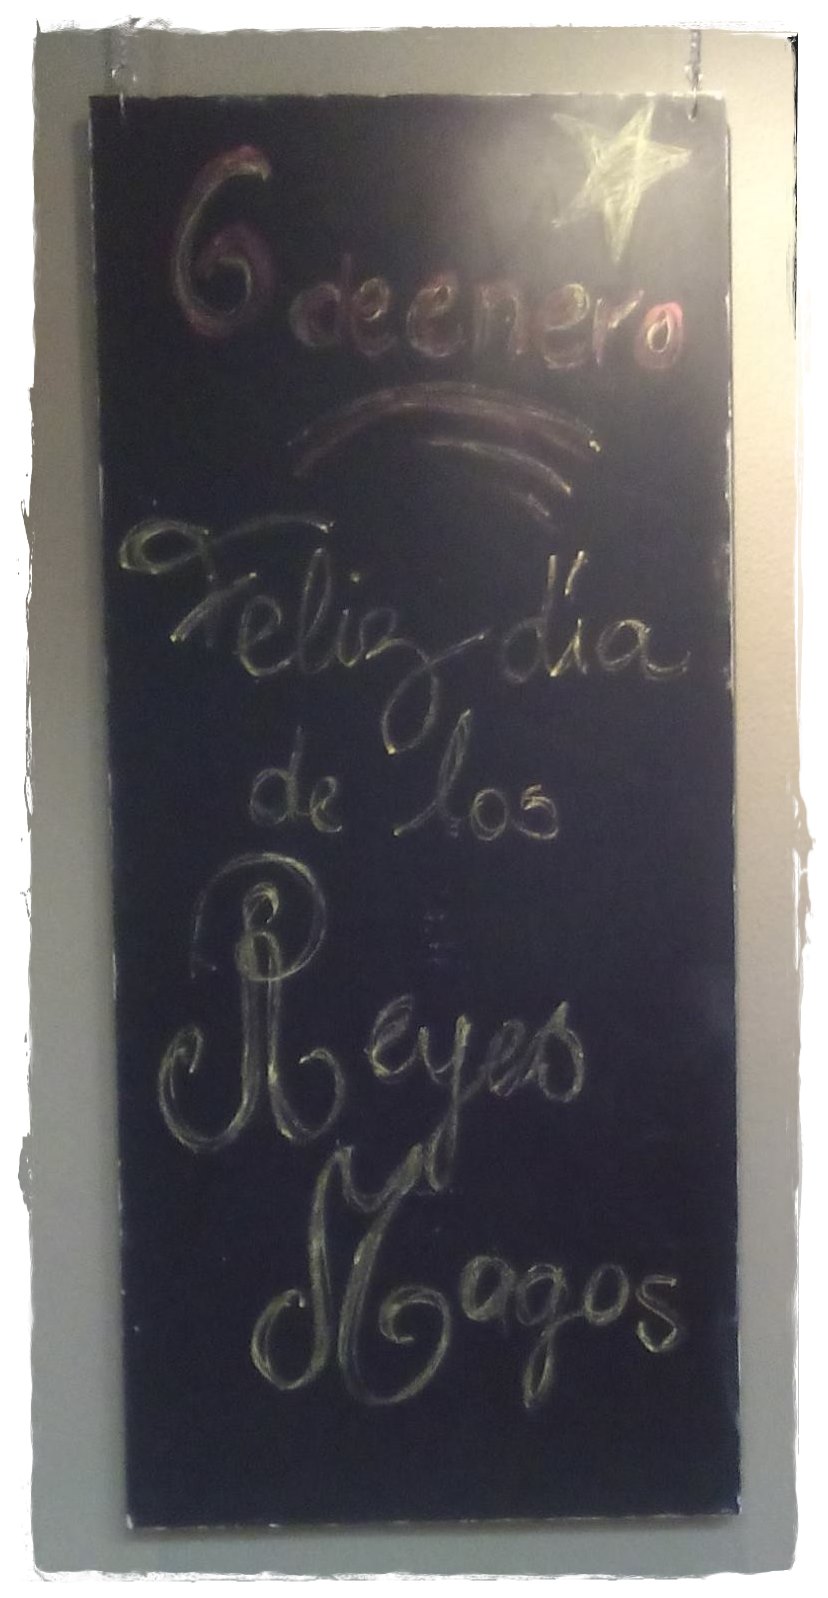 6 de enero
Feliz día
de los
Reyes
Magos